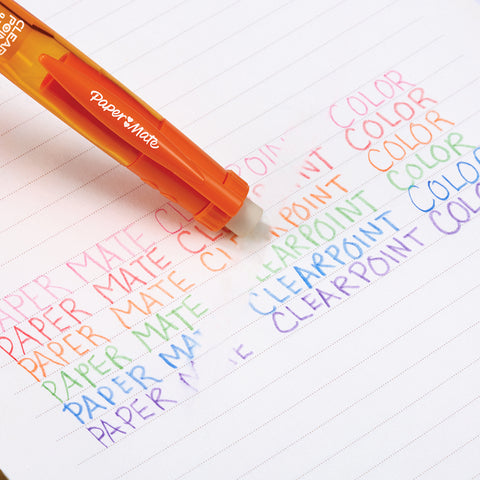 CLEAR
POINT
Paper Mate
PAPER MATE CLEARPOINT COLOR
PAPER MATE CLEARPOINT COLOR
PAPER MATE CLEARPOINT COLOR
PAPER MATE CLEARPOINT COLOR
PAPER MATE CLEARPOINT COLOR
PAPER MATE CLEARPOINT COLO